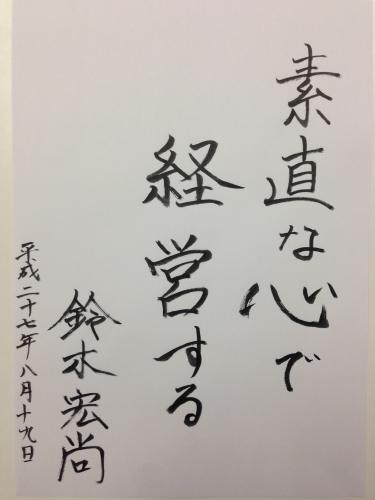 素直な心で
経営する
鈴木宏尚
平成二十七年八月十九日